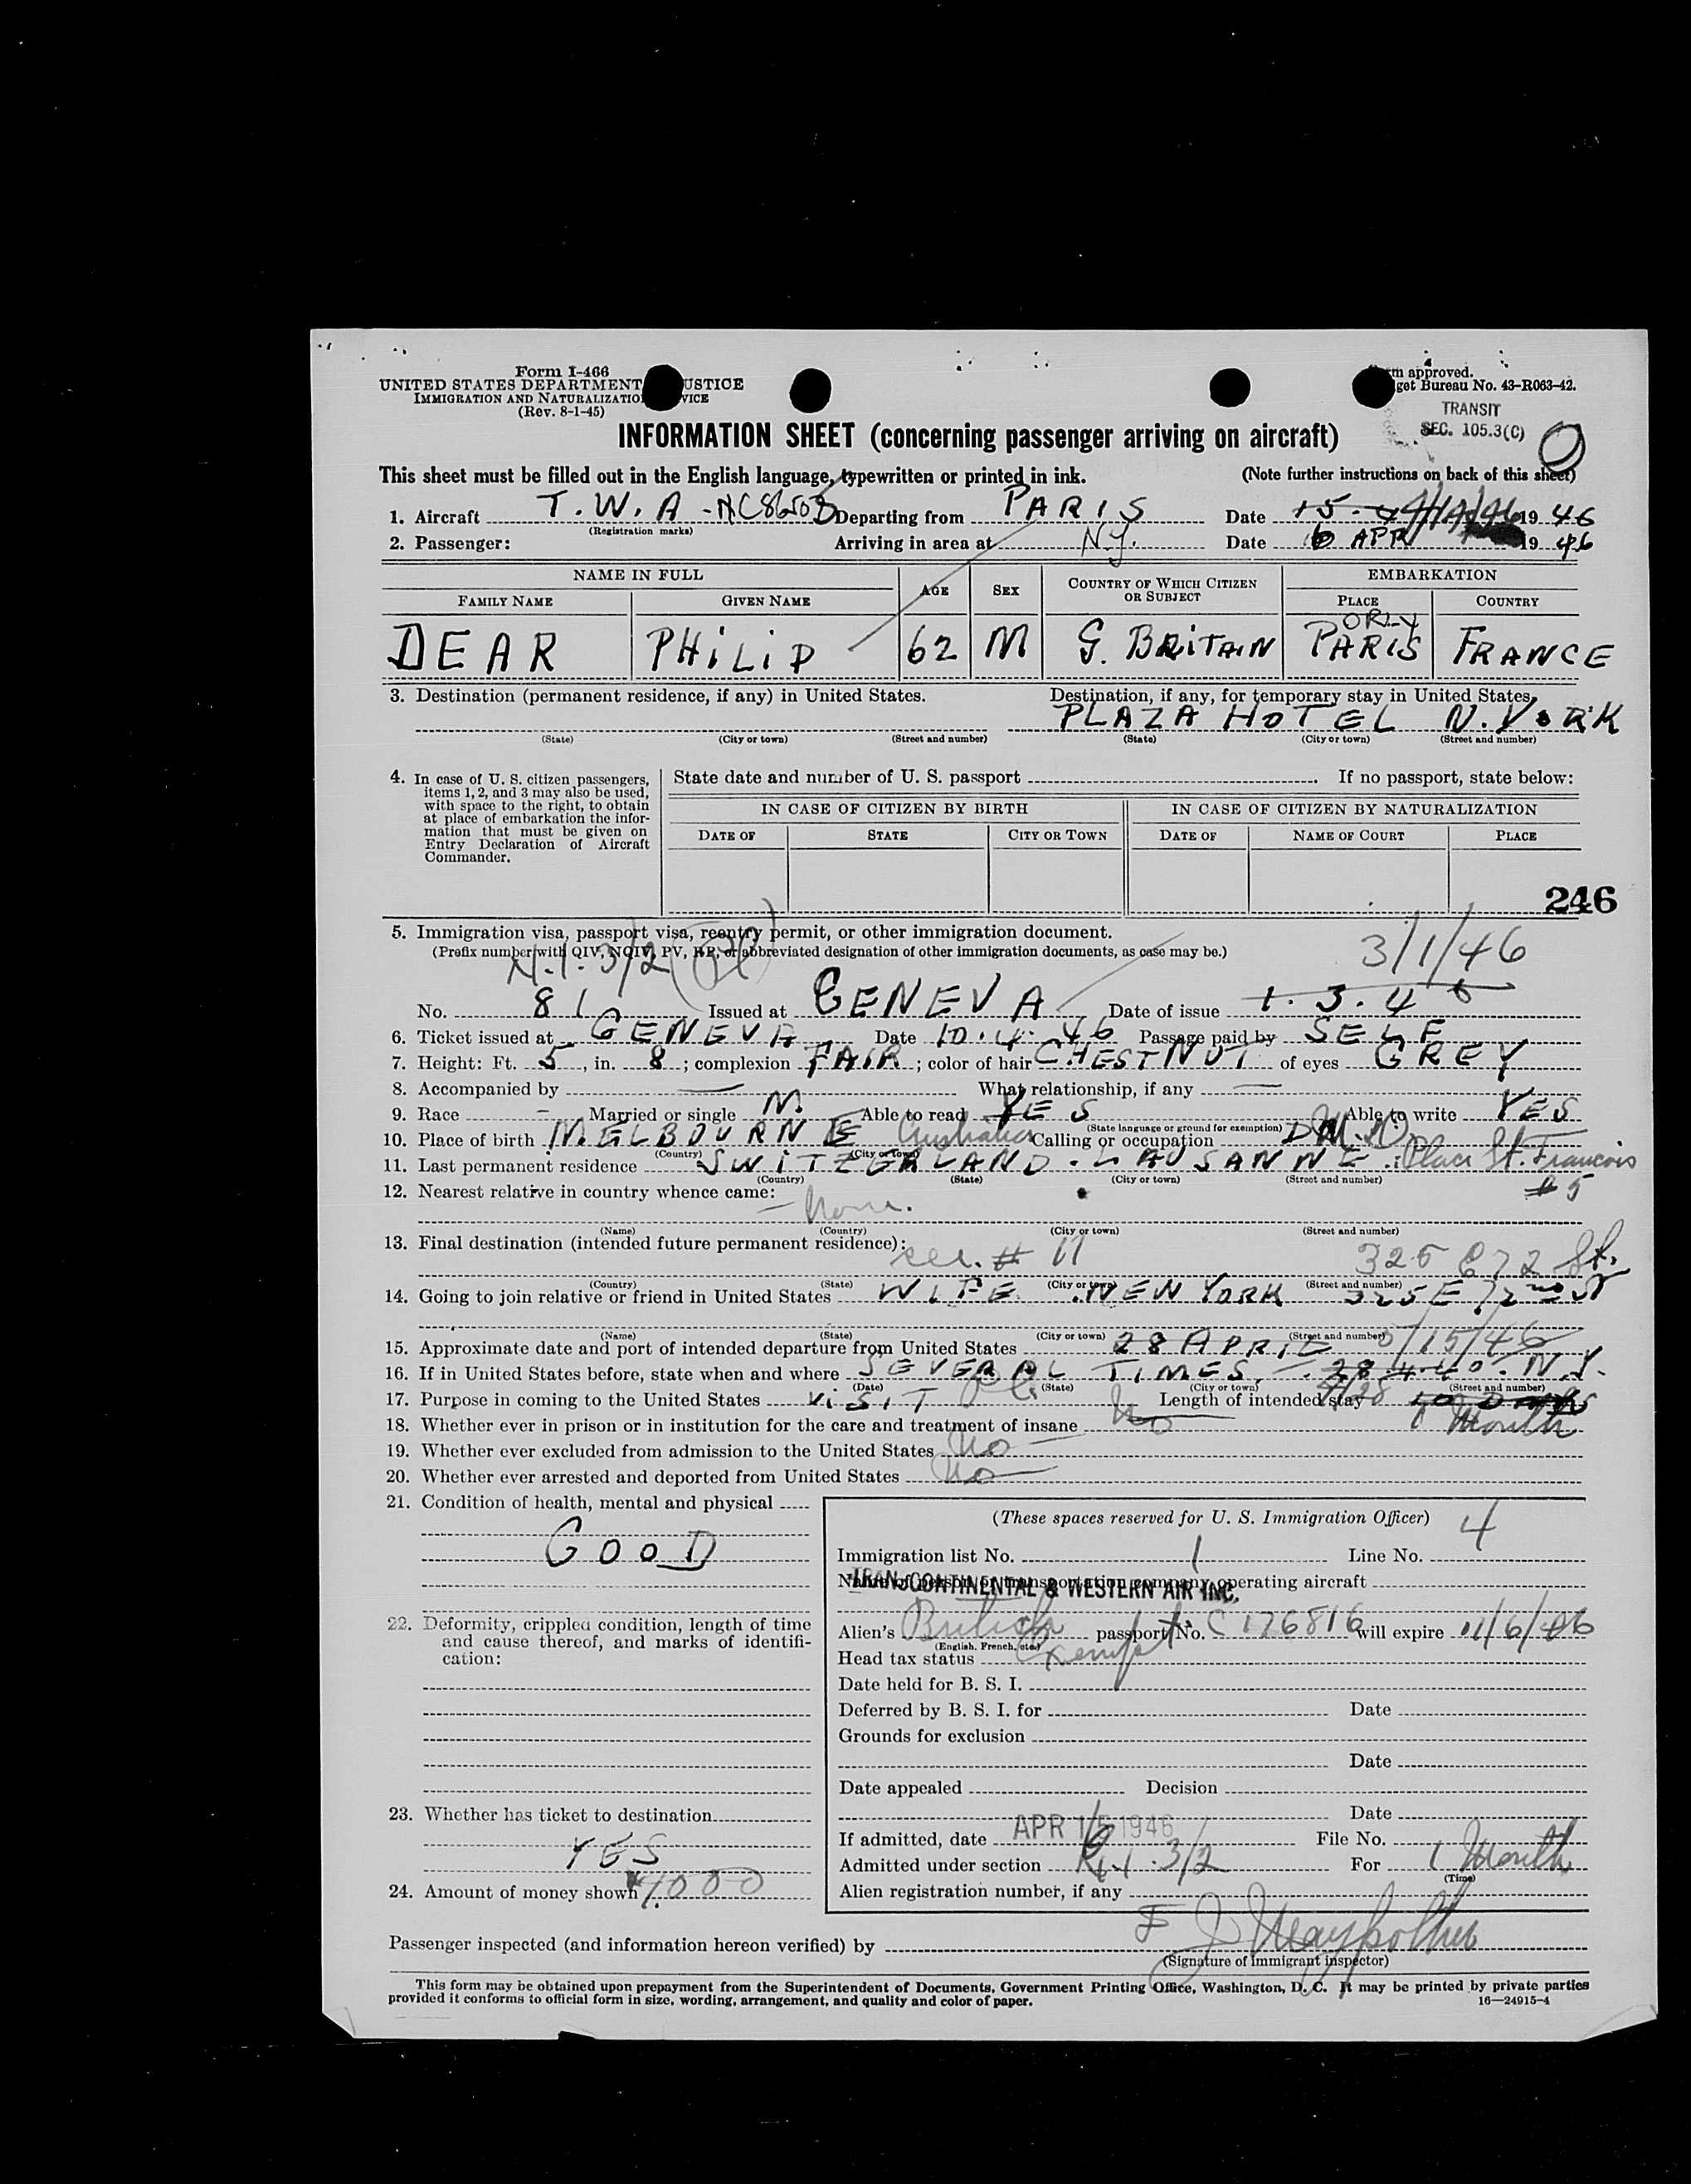 Form I-466
UNITED STATES DEPARTMENT USTICE
IMMIGRATION AND NATURALIZATIO VICE
(Rev. 8-1-45)
m approved.
get Bureau No. 43-R063-42.
TRANSIT
SEC. 105.3(C)
INFORMATION SHEET (concerning passenger arriving on aircraft)
This sheet must be filled out in the English language, typewritten or printed in ink. (Note further instructions on back of this sheet)
1. Aircraft T.W.A - NC86503 Departing from PARIS Date 15. 4/14/46 19 46
(Registration marks)
2. Passenger: Arriving in area at N.Y. Date 16 APR 19 46
NAME IN FULL AGE SEX COUNTRY OF WHICH CITIZEN OR SUBJECT EMBARKATION
FAMILY NAME GIVEN NAME PLACE COUNTRY
ORLY
DEAR PHILIP 62 M G. BRITAIN PARIS FRANCE
3. Destination (permanent residence, if any) in United States. Destination, if any, for temporary stay in United States.
PLAZA HOTEL N. YORK
(State) (City or town) (Street and number) (State) (City or town) (Street and number)
4. In case of U. S. citizen passengers, items 1, 2, and 3 may also be used, with space to the right, to obtain at place of embarkation the information that must be given on Entry Declaration of Aircraft Commander.
State date and number of U. S. passport If no passport, state below:
IN CASE OF CITIZEN BY BIRTH IN CASE OF CITIZEN BY NATURALIZATION
DATE OF STATE CITY OR TOWN DATE OF NAME OF COURT PLACE
246
5. Immigration visa, passport visa, reentry permit, or other immigration document.
(Prefix number with QIV, NQIV, PV, RP, or abbreviated designation of other immigration documents, as case may be.)
3/1/46
No. 81 Issued at GENEVA Date of issue 1.3.46
6. Ticket issued at GENEVA Date 10.4.46 Passage paid by SELF
7. Height: Ft. 5, in. 8; complexion FAIR; color of hair CHESTNUT of eyes GREY
8. Accompanied by — What relationship, if any —
9. Race - Married or single M. Able to read YES Able to write YES
(State language or ground for exemption)
10. Place of birth MELBOURNE Australia Calling or occupation
(Country) (City or town)
11. Last permanent residence SWITZERLAND. LAUSANNE. Place St. Francois
# 5
(Country) (State) (City or town) (Street and number)
12. Nearest relative in country whence came:
None.
(Name) (Country) (City or town) (Street and number)
13. Final destination (intended future permanent residence):
# 11 325 E 72 St.
(Country) (State) (City or town) (Street and number)
14. Going to join relative or friend in United States WIFE. NEW YORK 325 E 72nd ST
(Name) (State) (City or town) (Street and number)
15. Approximate date and port of intended departure from United States 28 APRIL 5/15/46
16. If in United States before, state when and where SEVERAL TIMES. 28.4.40 N.Y.
(Date) (State) (City or town) (Street and number)
17. Purpose in coming to the United States VISIT Length of intended stay 10 DAYS
1 Month
18. Whether ever in prison or in institution for the care and treatment of insane No
19. Whether ever excluded from admission to the United States No
20. Whether ever arrested and deported from United States No
21. Condition of health, mental and physical
GOOD
22. Deformity, crippled condition, length of time and cause thereof, and marks of identification:
23. Whether has ticket to destination
YES
24. Amount of money shown 1,000
(These spaces reserved for U. S. Immigration Officer)
Immigration list No. 1 Line No. 4
Name of person or transportation company operating aircraft
TRANSCONTINENTAL & WESTERN AIR INC.
Alien's British passport No. C 176816 will expire 11/6/46
(English, French, etc.)
Head tax status Exempt
Date held for B. S. I.
Deferred by B. S. I. for Date
Grounds for exclusion
Date
Date appealed Decision
Date
If admitted, date APR 16 1946 File No.
Admitted under section 3/2 For 1 Month
(Time)
Alien registration number, if any
Passenger inspected (and information hereon verified) by
(Signature of immigrant inspector)
This form may be obtained upon prepayment from the Superintendent of Documents, Government Printing Office, Washington, D. C. It may be printed by private parties
provided it conforms to official form in size, wording, arrangement, and quality and color of paper.
16—24915-4